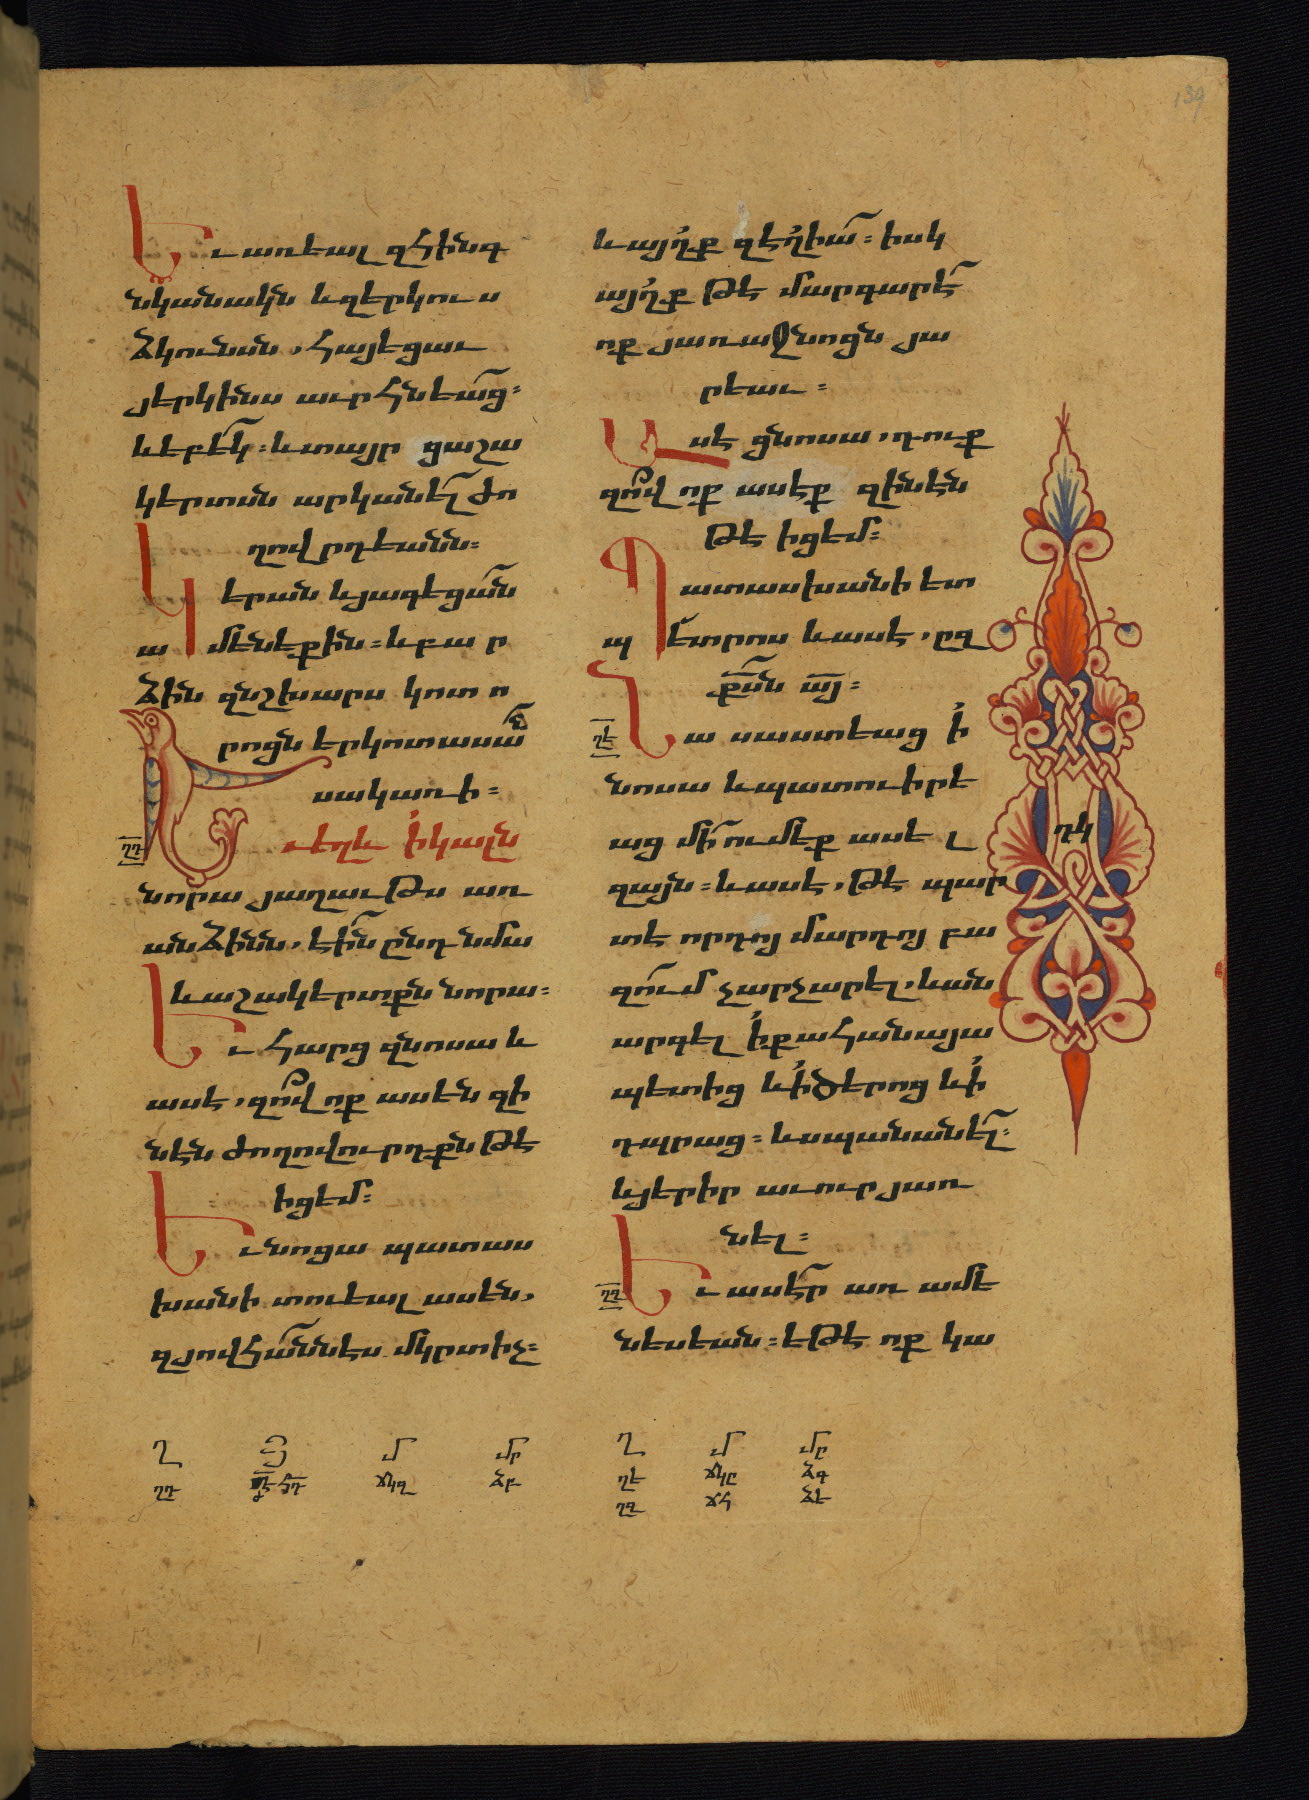 139
Եւ առեալ զհինգ
նկանակն և զերկուս
ձկունսն, հայեցաւ
յերկինս աւրհնեաց։
և եբեկ։ և տայր ցաշա
կերտսն արկանել ժո
ղովրդեանն։
Կերան և յագեցան
ամենեքին։ և բար
ձին զնշխարս կոտո
րոցն երկոտասան
սակառի։
Եւ եղև ի կալն
նորա յաղաւթս առ
անձինն, էին ընդ նմա
և աշակերտքն նորա։
Եւ հարց զնոսա և
ասէ, զո՞վ ոք ասեն զի
նէն ժողովուրդքն թէ
իցեմ։
Եւ նոցա պատաս
խանի տուեալ ասեն,
զյովհաննէս մկրտիչ։
և այլք զեղիա։ իսկ
այլք թէ մարգարէ
ոք յառաջնոցն յա
րեաւ։
Ասէ ցնոսա, դուք
զո՞վ ոք ասէք զինէն
թէ իցեմ։
Պատասխանի ետ
պետրոս և ասէ, ըզ
քսն այ։
ղե
Նա սաստեաց ի
նոսա և պատուիրե
աց մի ումեք ասել
զայն։ և ասէ, թէ պար
տէ որդոյ մարդոյ բա
զում չարչարել, և ան
արգել ի քահանայա
պետից և ի ծերոց և ի
դպրաց։ և սպանանել։
և յերիր աւուր յառ
նել։
ղզ
Եւ ասէր առ ամե
նեսեան։ եթէ ոք կա
ղդ
ղկ
Ղ Յ Մ Մր
ղդ հդ ճկզ ձբ
Ղ Մ Մր
ղե ճկը ձգ
ղզ ճհ ձե